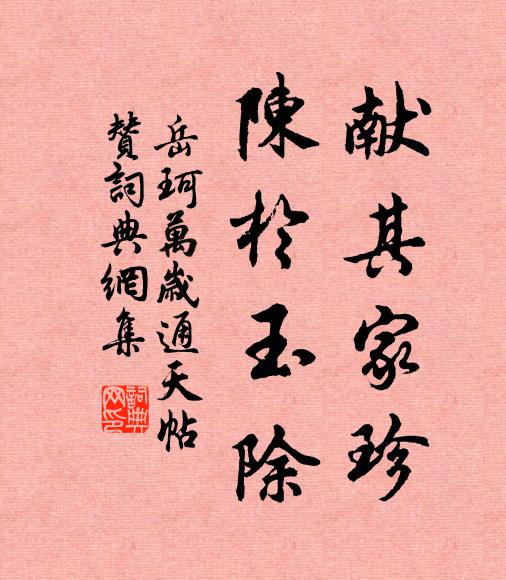 献其家珍
陳於玉除
岳珂萬歲通天帖
贊詞典網集
詞典網印